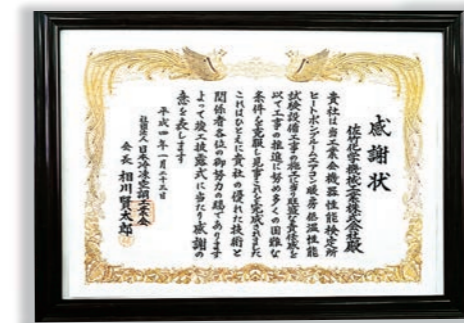 感謝状
佐竹化学機械工業株式会社殿
貴社は当工業会機器性能検定所
ヒートポンプルームエアコン暖房低温性能
試験設備工事の施工に当り旺盛な責任感を
以て工事の推進に努め多くの困難な
条件を克服し見事これを完成されました
これはひとえに貴社の優れた技術と
関係者各位の御努力の賜であります
よって竣工披露式に当たり感謝の
意を表します
平成四年一月二十三日
社団法人日本冷凍空調工業会
会長 相川賢太郎